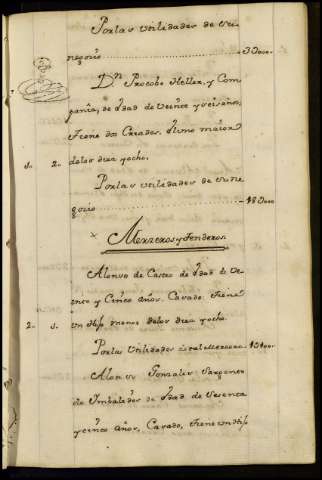 Por las Utilidades de su
negocio ........ 3 000.
Dn. Procobo Heller, y Com
pania, de Edad de Veinte y seis años,
Tiene dos Criados. El uno maior
de los diez y ocho.
2.
Por las Utilidades de su Ne
gocio ........ 18 000
Merzeros y Tenderos
Alonso de Castro de Edad de
enta y Cinco años. Casado. Tiene
un Hijo menor de los diez y ocho
2.
Por las Utilidades de tal Merzero. 1
Alonso Gonzalez Sargento
de Imbalidos de Edad de Sesenta
y cinco años, Casado, Tiene un Hijo